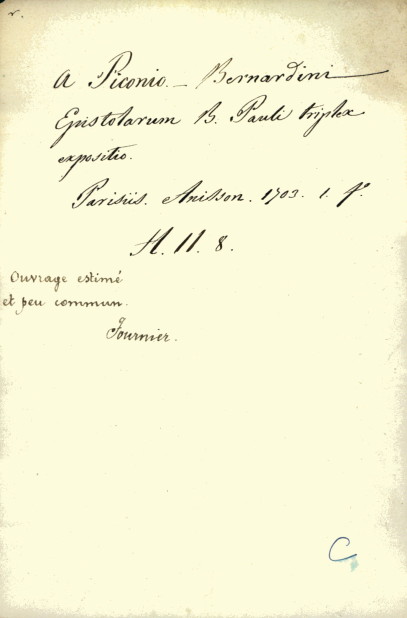 r.
a Piconio. _ Bernardini
Epistolarum B. Pauli triplex
expositio.
Parisiis. Anisson. 1703. 1. fº.
H. 11. 8.
Ouvrage estimé
et peu commun.
Fournier.
C